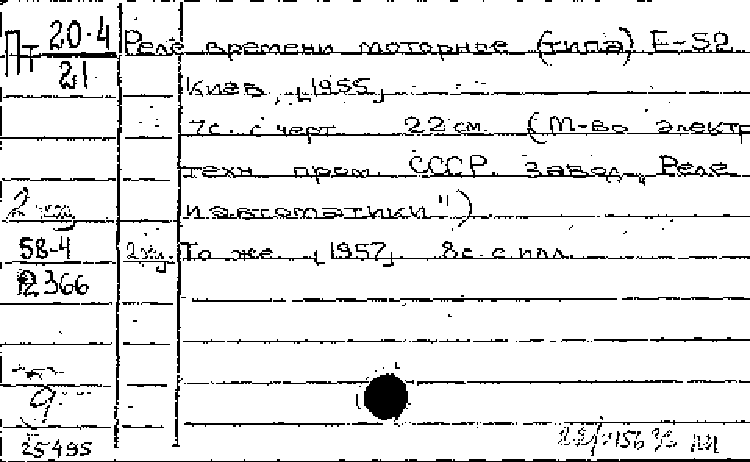 Пт 20-4 Реле времени моторное (типа) Е-52
21
Киев, [1955]
7с. с черт. 22 см. (М-во электр
техн. пром. СССР. Завод „Реле
и автоматики")
2 экз
58-4 2 экз. То же. [1957]. 8с. с илл.
2366
9
25495